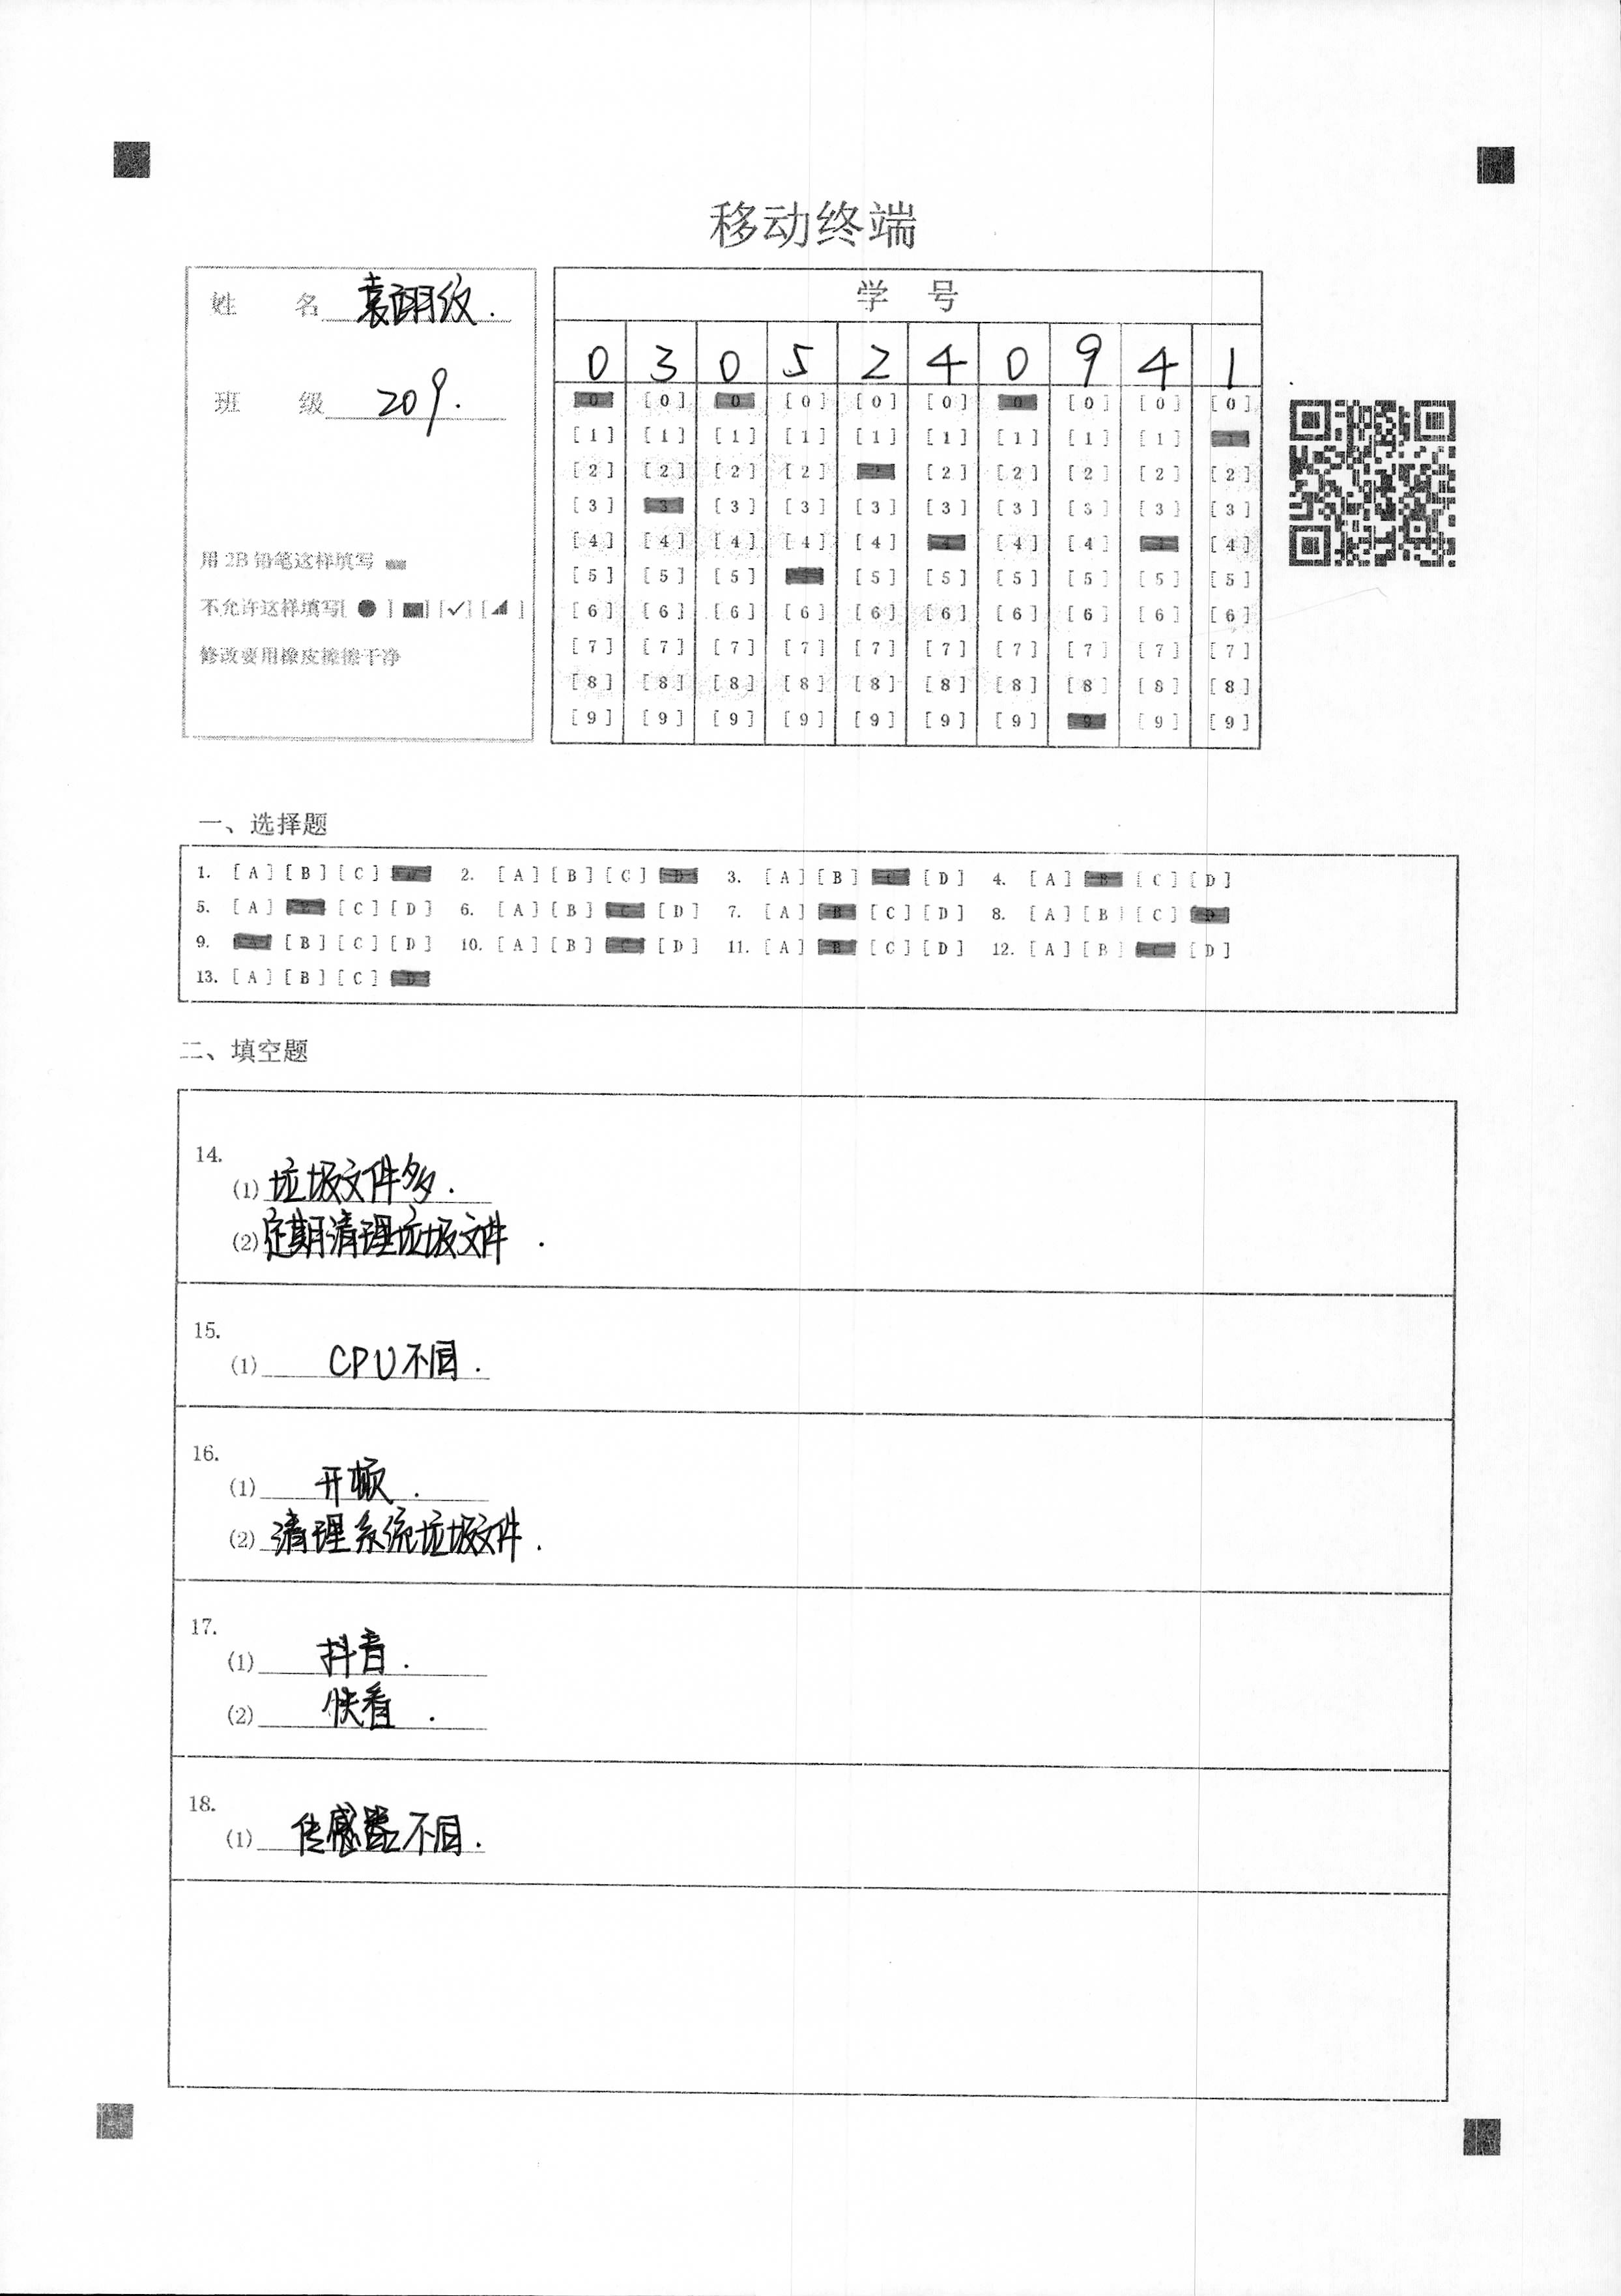 移动终端
姓 名 袁翊纹.
班 级 209.
用 2B 铅笔这样填写
不允许这样填写[ ● ] [■] [✓] [◢ ]
修改要用橡皮擦擦干净
学 号
0 3 0 5 2 4 0 9 4 1
[0] [0] [0] [0] [0] [0] [0] [0] [0] [0]
[1] [1] [1] [1] [1] [1] [1] [1] [1] [1]
[2] [2] [2] [2] [2] [2] [2] [2] [2] [2]
[3] [3] [3] [3] [3] [3] [3] [3] [3] [3]
[4] [4] [4] [4] [4] [4] [4] [4] [4] [4]
[5] [5] [5] [5] [5] [5] [5] [5] [5] [5]
[6] [6] [6] [6] [6] [6] [6] [6] [6] [6]
[7] [7] [7] [7] [7] [7] [7] [7] [7] [7]
[8] [8] [8] [8] [8] [8] [8] [8] [8] [8]
[9] [9] [9] [9] [9] [9] [9] [9] [9] [9]
一、选择题
1. [A] [B] [C] [D] 2. [A] [B] [C] [D] 3. [A] [B] [C] [D] 4. [A] [B] [C] [D]
5. [A] [B] [C] [D] 6. [A] [B] [C] [D] 7. [A] [B] [C] [D] 8. [A] [B] [C] [D]
9. [A] [B] [C] [D] 10. [A] [B] [C] [D] 11. [A] [B] [C] [D] 12. [A] [B] [C] [D]
13. [A] [B] [C] [D]
二、填空题
14.
(1) 垃圾文件多.
(2) 定期清理垃圾文件.
15.
(1) CPU不同.
16.
(1) 开
(2) 清理系统垃圾文件.
17.
(1) 抖音.
(2) 快看.
18.
(1) 传感器不同.